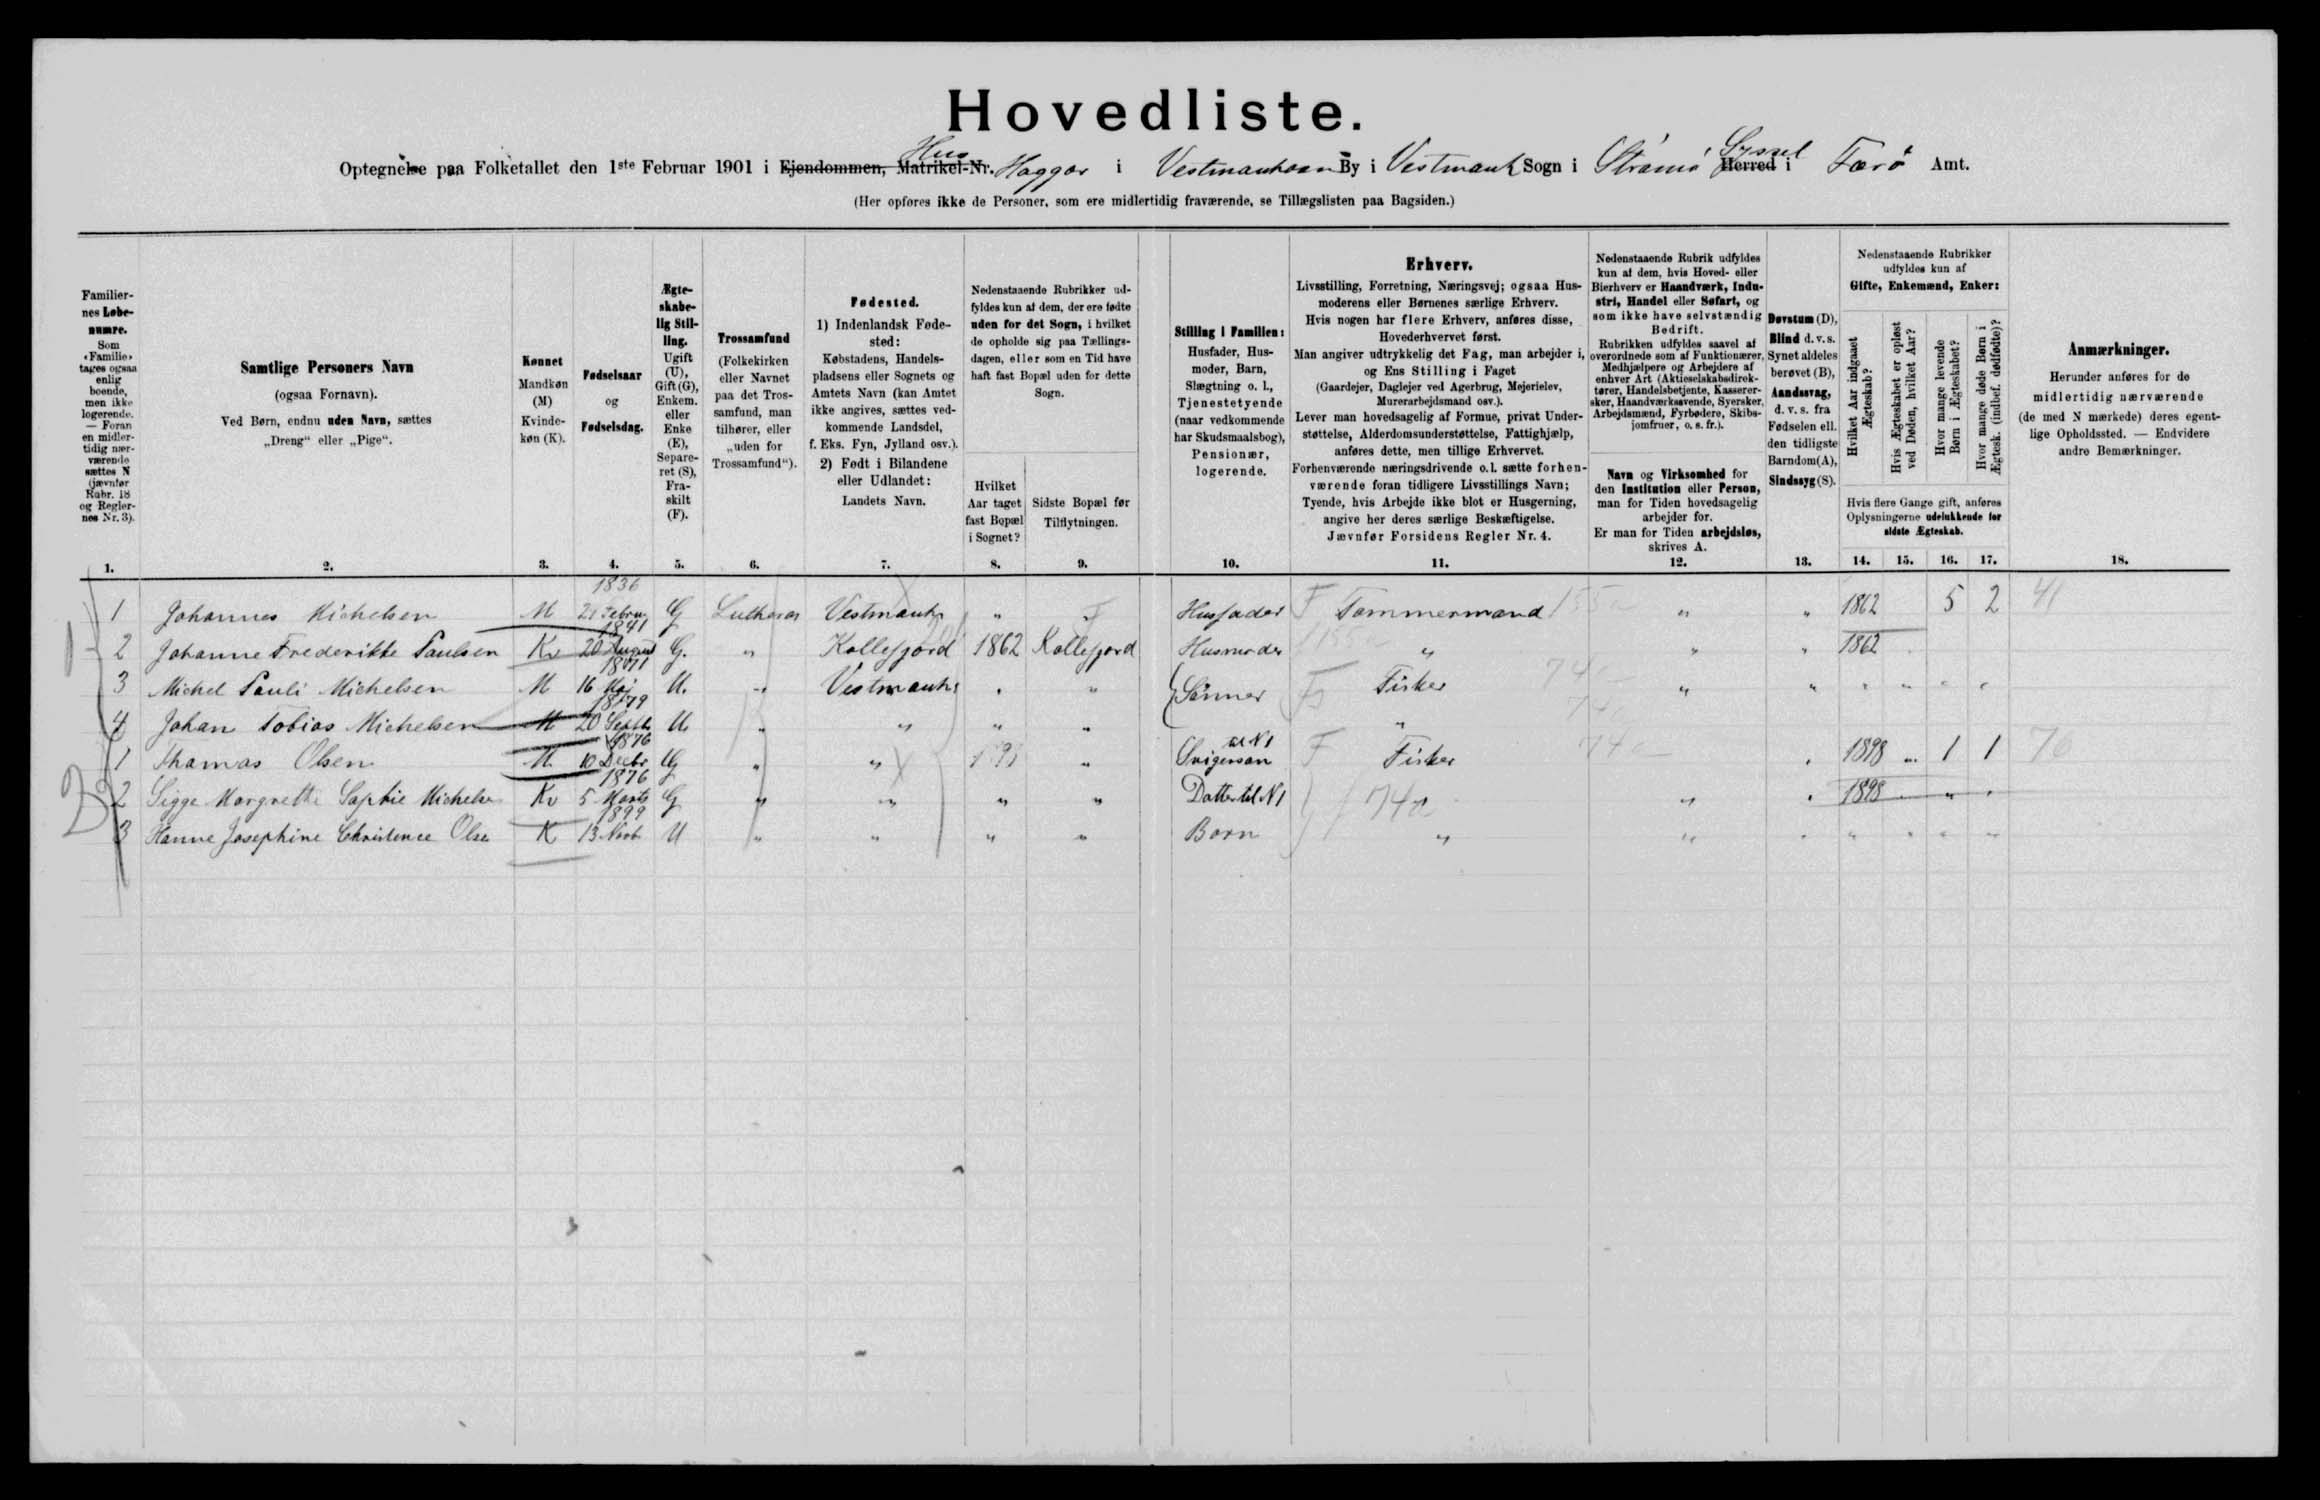 Hovedliste.
Optegnelse paa Folketallet den 1ste Februar 1901 i Ejendommen, Matrikel-Nr. Hus Haggar i Vestmanhavn By i Vestmanh Sogn i Strömö Syssel Herred i Færö Amt.
(Her opføres ikke de Personer, som ere midlertidig fraværende, se Tillægslisten paa Bagsiden.)
Familiernes Løbenumre.
Som «Familie» tages ogsaa enlig boende, men ikke logerende. — Foran en midlertidig nærværende sættes N (jævnfør Rubr. 18 og Reglernes Nr. 3).
Samtlige Personers Navn
(ogsaa Fornavn).
Ved Børn, endnu uden Navn, sættes
„Dreng“ eller „Pige“.
Kønnet
Mandkøn (M)
Kvindekøn (K).
Fødselsaar
og
Fødselsdag.
Ægteskabelig Stilling.
Ugift (U), Gift (G), Enkem. eller Enke (E), Separeret (S), Fraskilt (F).
Trossamfund
(Folkekirken eller Navnet paa det Trossamfund, man tilhører, eller „uden for Trossamfund“).
Fødested.
1) Indenlandsk Fødested:
Købstadens, Handelspladsens eller Sognets og Amtets Navn (kan Amtet ikke angives, sættes vedkommende Landsdel, f. Eks. Fyn, Jylland osv.).
2) Født i Bilandene eller Udlandet:
Landets Navn.
Nedenstaaende Rubrikker udfyldes kun af dem, der ere fødte uden for det Sogn, i hvilket de opholde sig paa Tællingsdagen, eller som en Tid have haft fast Bopæl uden for dette Sogn.
Hvilket Aar taget fast Bopæl i Sognet?
Sidste Bopæl før Tilflytningen.
Stilling i Familien:
Husfader, Husmoder, Barn, Slægtning o. l., Tjenestetyende (naar vedkommende har Skudsmaalsbog), Pensionær, logerende.
Erhverv.
Livsstilling, Forretning, Næringsvej; ogsaa Husmoderens eller Børnenes særlige Erhverv.
Hvis nogen har flere Erhverv, anføres disse, Hovederhvervet først.
Man angiver udtrykkelig det Fag, man arbejder i, og Ens Stilling i Faget
(Gaardejer, Daglejer ved Agerbrug, Mejerielev, Murerarbejdsmand osv.).
Lever man hovedsagelig af Formue, privat Understøttelse, Alderdomsunderstøttelse, Fattighjælp, anføres dette, men tillige Erhvervet.
Forhenværende næringsdrivende o. l. sætte forhenværende foran tidligere Livsstillings Navn;
Tyende, hvis Arbejde ikke blot er Husgerning, angive her deres særlige Beskæftigelse.
Jævnfør Forsidens Regler Nr. 4.
Nedenstaaende Rubrik udfyldes kun af dem, hvis Hoved- eller Bierhverv er Haandværk, Industri, Handel eller Søfart, og som ikke have selvstændig Bedrift.
Rubrikken udfyldes saavel af overordnede som af Funktionærer, Medhjælpere og Arbejdere af enhver Art (Aktieselskabsdirektører, Handelsbetjente, Kasserersker, Haandværkssvende, Syersker, Arbejdsmænd, Fyrbødere, Skibsjomfruer, o. s. fr.).
Navn og Virksomhed for den Institution eller Person, man for Tiden hovedsagelig arbejder for.
Er man for Tiden arbejdsløs, skrives A.
Døvstum (D), Blind d. v. s. Synet aldeles berøvet (B), Aandssvag, d. v. s. fra Fødselen ell. den tidligste Barndom (A), Sindssyg (S).
Nedenstaaende Rubrikker udfyldes kun af
Gifte, Enkemænd, Enker:
Hvilket Aar indgaaet Ægteskab?
Hvis Ægteskabet er opløst ved Døden, hvilket Aar?
Hvor mange levende Børn i Ægteskabet?
Hvor mange døde Børn i Ægtesk. (indbef. dødfødte)?
Hvis flere Gange gift, anføres Oplysningerne udelukkende for sidste Ægteskab.
Anmærkninger.
Herunder anføres for de midlertidig nærværende (de med N mærkede) deres egentlige Opholdssted. — Endvidere andre Bemærkninger.
1. 2. 3. 4. 5. 6. 7. 8. 9. 10. 11. 12. 13. 14. 15. 16. 17. 18.
1 Johannes Michelsen M 1836 21 Febru G Lutheran Vestmanh " " Husfader F Tømmermand 155 " " 1862 5 2 41
2 Johanne Frederikke Paulsen Kv 1841 20 August G. " Kollefjord 1862 Kollefjord Husmoder " " " 1862
3 Michel Pauli Michelsen M 1871 16 Maj U. " Vestmanh " " Sønner Fisker 74 " " " " " "
4 Johan Tobias Michelsen M 1879 20 Septb U " " " " "
1 Thomas Olsen M 1876 10 Decbr G " " " Svigersøn til N1 F Fisker 74 " 1898 " 1 1 76
2 Sigge Margrethe Sophie Michelse Kv 1876 5 Marts G " " " " Datter til N1 74 " " 1898 " "
3 Hanne Josephine Christence Olse K 1899 13 Novb U " " " " Barn " " " " " " "